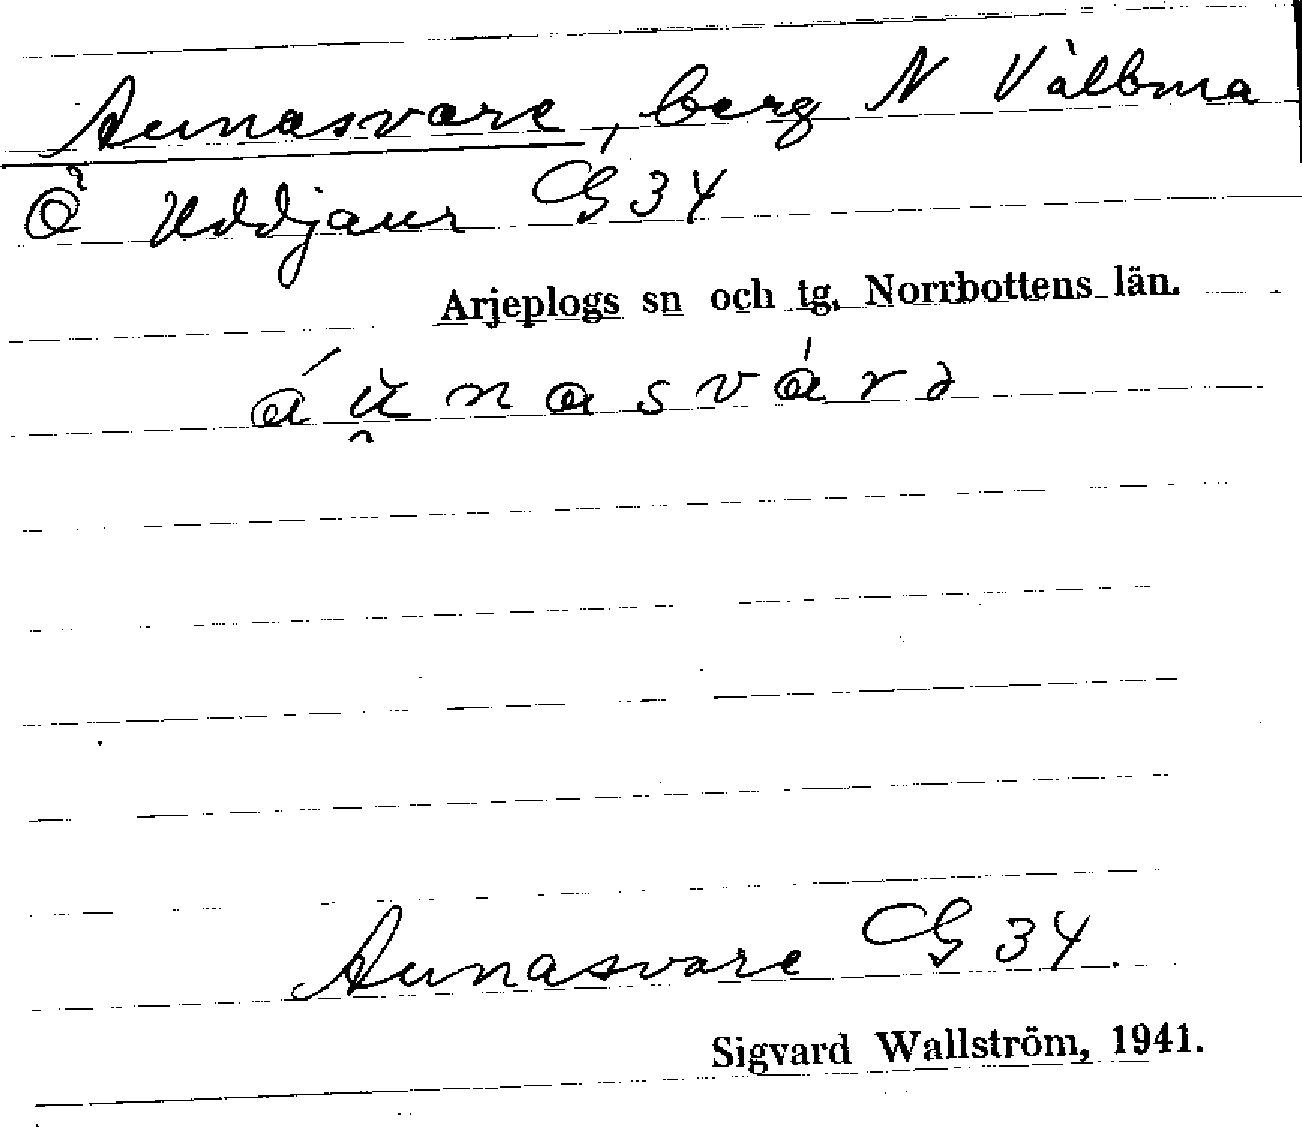 Aunasvare, berg N Välbma
Ö Uddjaur GG 34
Arjeplogs sn och tg. Norrbottens län.
áu̯nasvárə
Aunasvare GG 34.
Sigvard Wallström, 1941.